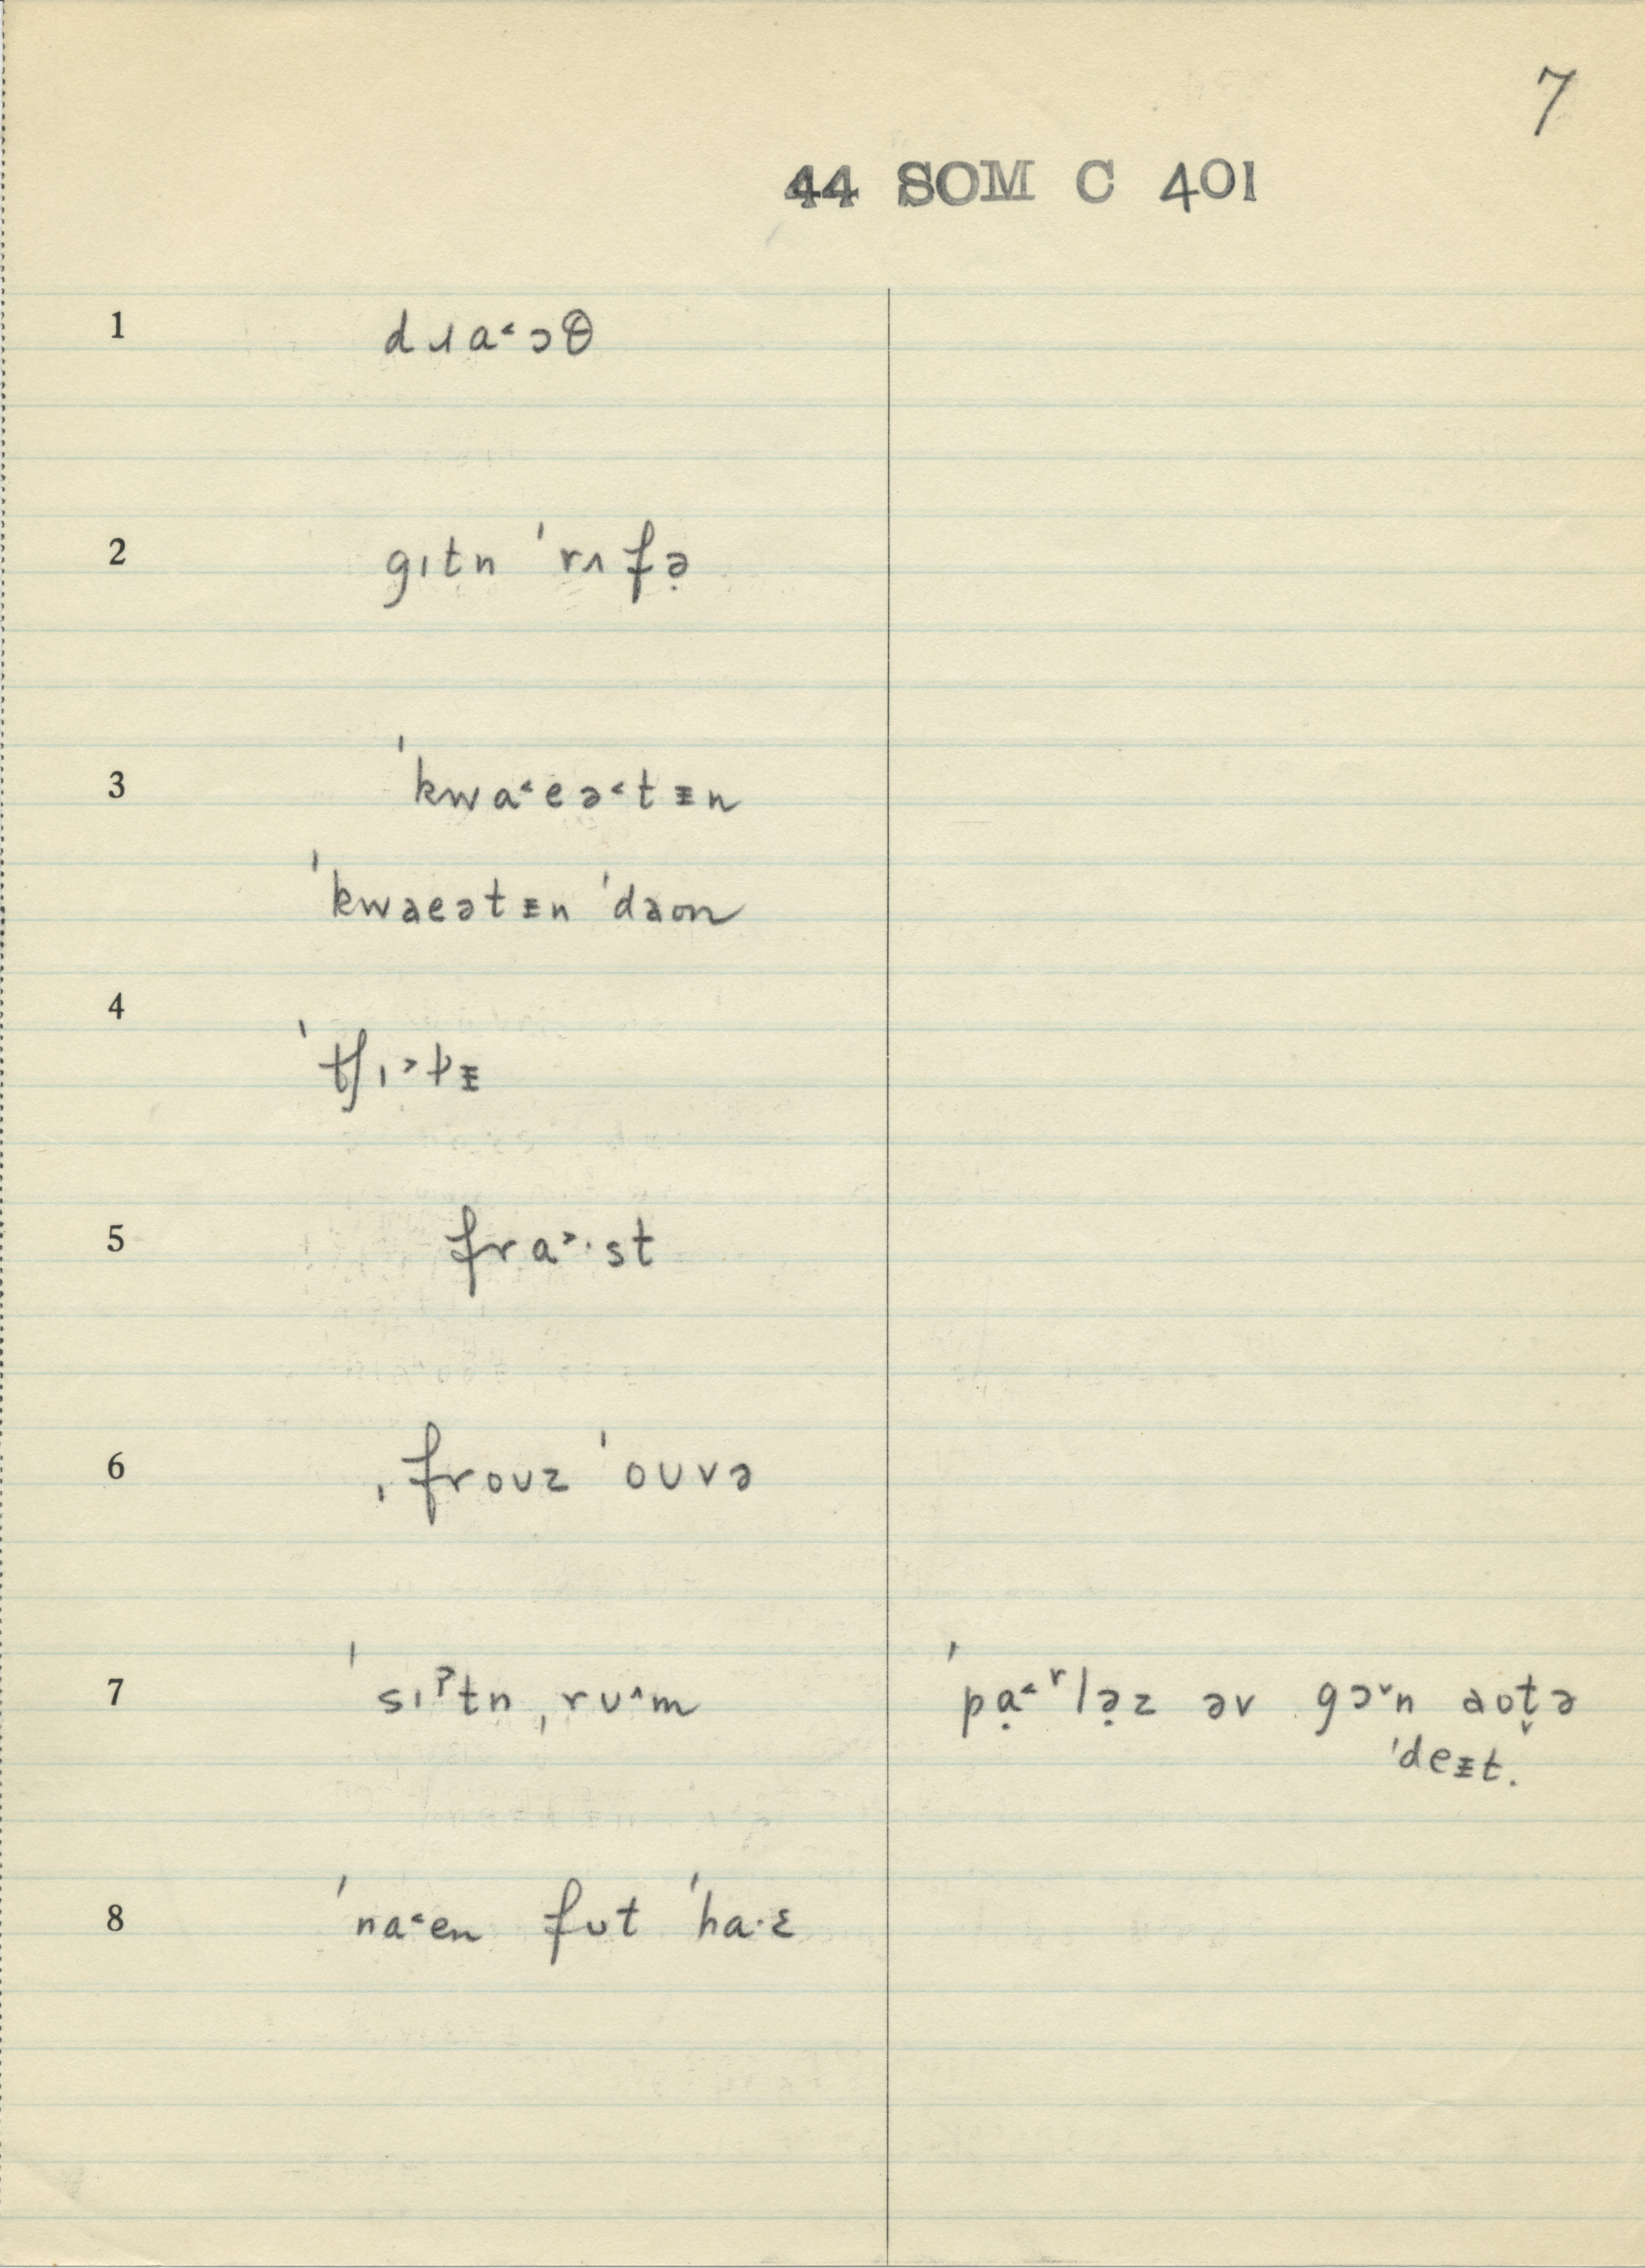 7
44 SOM C 401
1 dɹa˂ɔθ
2 gɪtn ˈrʌfə̣
3 ˈkwa˂eə˂tᵻn
ˈkwaeətᵻn ˈdaʊn
4 ˈtʃɪ˃t̬ᵻ
5 fra˃·st
6 ˌfroʊz ˈoʊvə
7 ˈsɪˀtn ˌrʊ˄m ˈpạ˂ʳlə̣z əv gɔ˅n aʊt̬ə
ˈdeᵻt.
8 ˈna˂en fʊt ˈha·ɛ